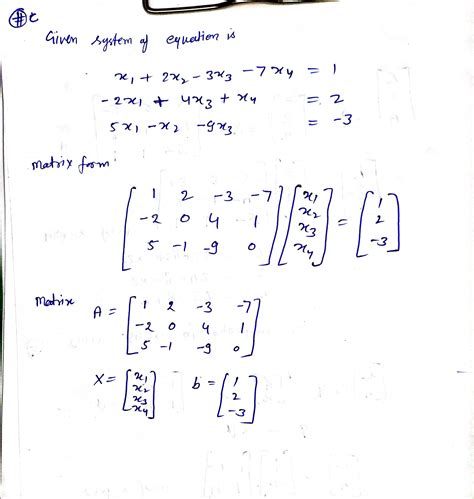 #c
Given system of equation is
x₁ + 2x₂ - 3x₃ - 7x₄ = 1
-2x₁ + 4x₃ + x₄ = 2
5x₁ - x₂ - 9x₃ = -3
Matrix form
[1 2 -3 -7] [x₁] [1]
[-2 0 4 1] [x₂] = [2]
[5 -1 -9 0] [x₃] [-3]
[x₄]
Matrix A = [1 2 -3 -7]
[-2 0 4 1]
[5 -1 -9 0]
X = [x₁] b = [1]
[x₂] [2]
[x₃] [-3]
[x₄]